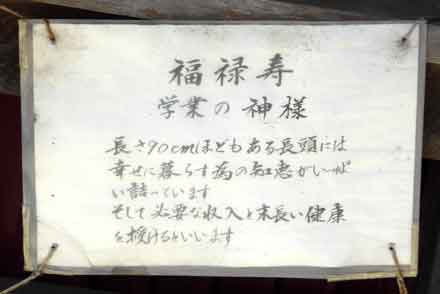 福禄寿
学業の神様
長さ90cmほどもある長頭には
幸せに暮らす為の知恵がいっぱ
い詰っています
そして必要な収入と末長い健康
を授けるといいます